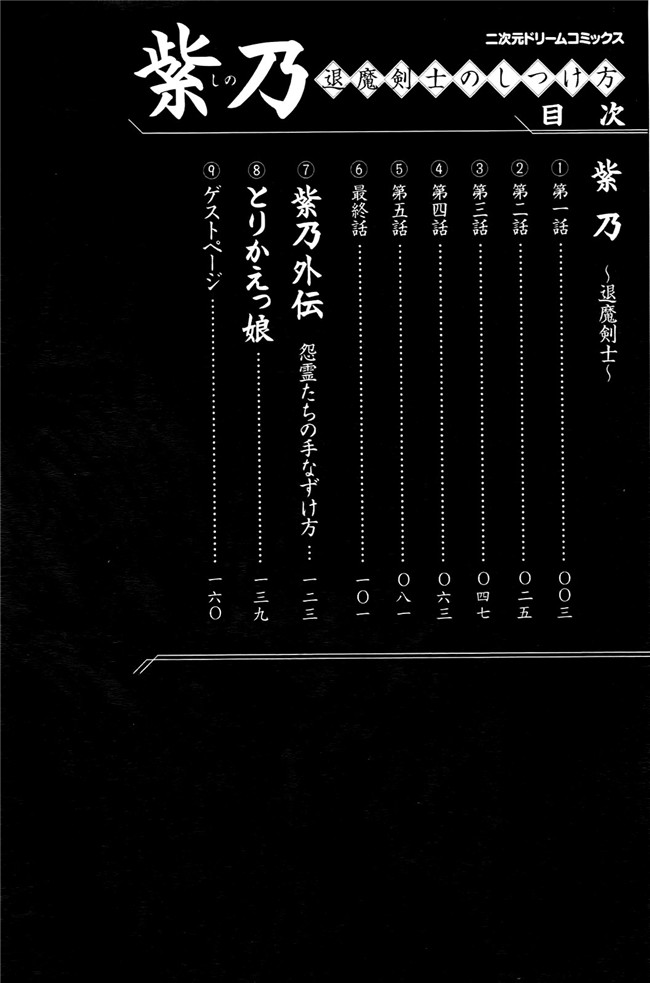 二次元ドリームコミックス
紫乃
しの
退魔剣士のしつけ方
目次
紫乃 ～退魔剣士～
① 第一話 〇〇三
② 第二話 〇二五
③ 第三話 〇四七
④ 第四話 〇六三
⑤ 第五話 〇八一
⑥ 最終話 一〇一
⑦ 紫乃外伝 怨霊たちの手なずけ方 … 一二三
⑧ とりかえっ娘 一三九
⑨ ゲストページ 一六〇